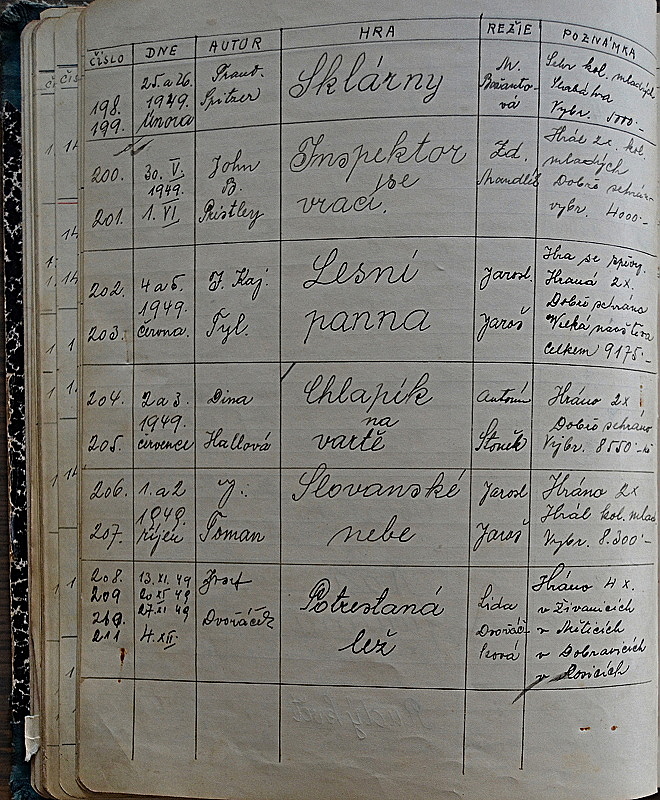 ČÍSLO DNE AUTOR HRA REŽIE POZNÁMKA
198. 199. 25 a 26. 1949. února Spitzer Sklárny M. Sehr. kol. mladých Slabá hra Vybr. 5000.-
200. 201. 30. V. 1949. 1. VI John B. Pristley Inspektor se vrací. Zd. Mandlík Hrál 2x. kol. mladých Dobře sehráno vybr. 4000.-
202. 203. 4 a 5. 1949. června. J. Kaj. Tyl. Lesní panna Jarosl. Jaroš Hra se zpěvy. Hraná 2x. Dobře sehráno Velká návštěva Celkem 9175.-
204. 205. 2 a 3. 1949. července Dina Hallová Chlapík na vartě Antonín Hráno 2x Dobře sehráno Vybr. 8550.- kč
206. 207. 1. a 2 1949. říjen J. Toman Slovanské nebe Jarosl Jaroš Hráno 2x Hrál kol. mlad. Vybr. 8.300.-
208. 209 210. 211 13. XI. 49 20 XI 49 27. XI 49 4. XII. Josef Dvořáček Potrestaná lež Lida Dvořáčková Hráno 4 x. v Živanicích v Dobranicích v Rosicích